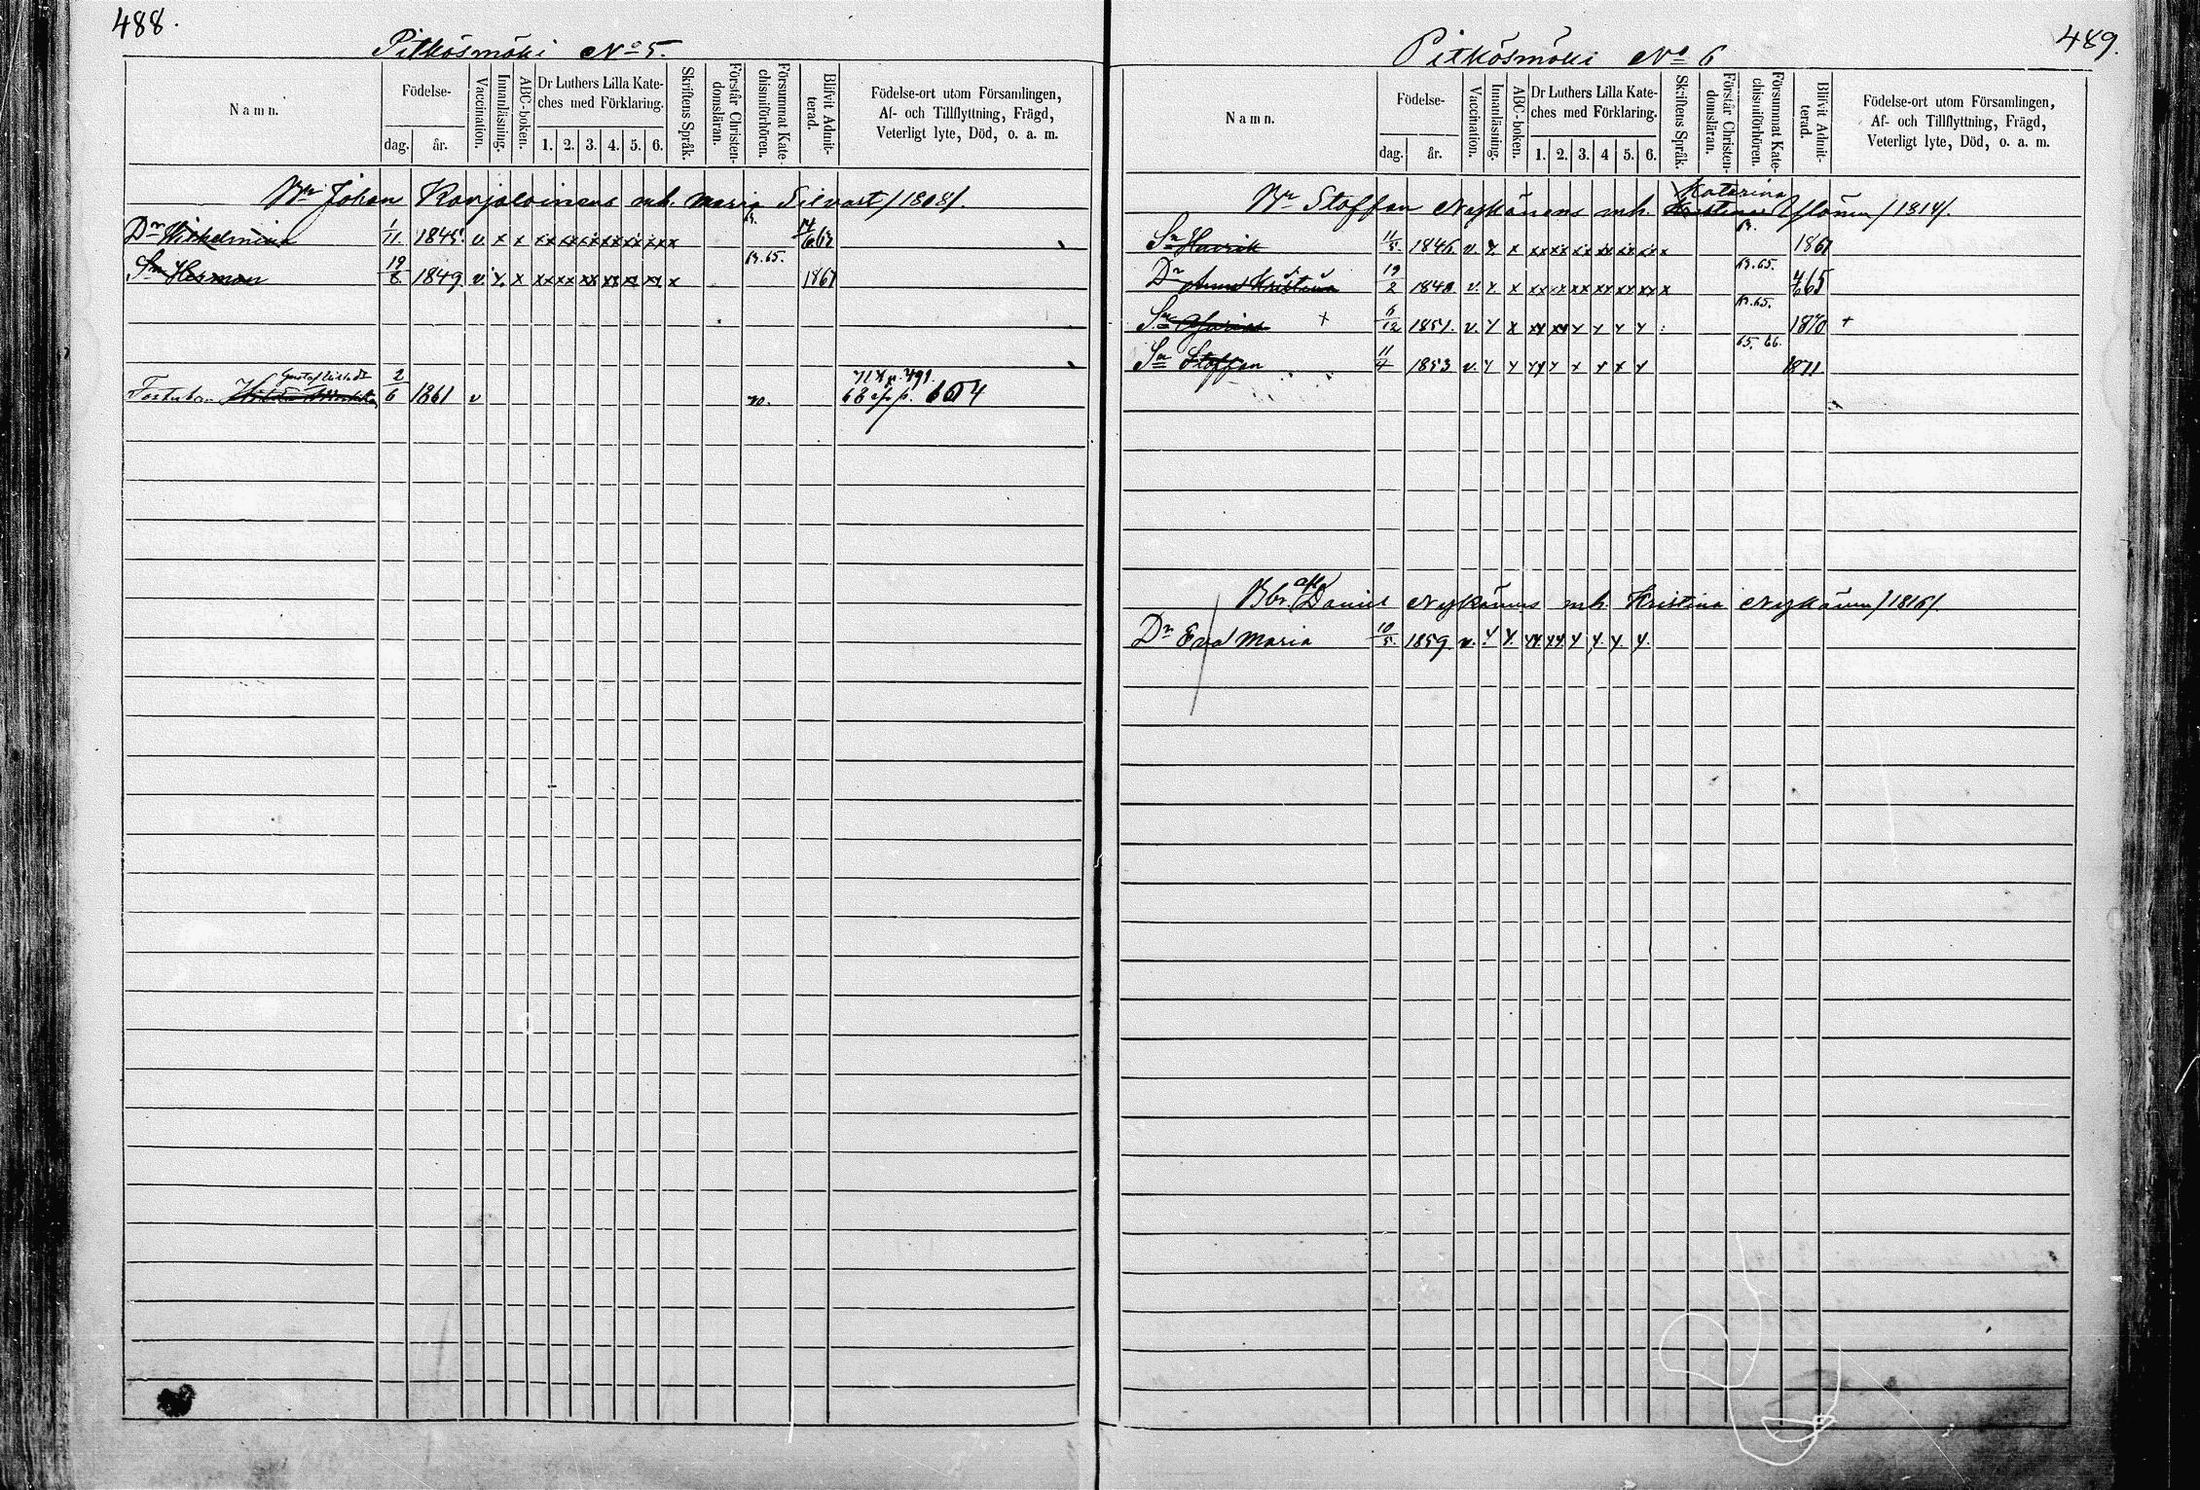 488.
Pitkäsmäki No 5.
Namn.
Födelse-
dag. år.
Vaccination.
Innanläsning.
ABC-boken.
Dr Luthers Lilla Kate-
ches med Förklaring.
1. 2. 3. 4. 5. 6.
Skriftens Språk.
Förstår Christen-
domsläran.
Försummat Kate-
chismiförhören.
Blifvit Admit-
terad.
Födelse-ort utom Församlingen,
Af- och Tillflyttning, Frägd,
Veterligt lyte, Död, o. a. m.
Johan Karjalainens mh. Maria Silvast /1808/.
Dr Wilhelmina 1/11 1845 v. x x xx xx xx xx xx xx x
Sn Herman 19/6 1849 v. x x xx xx xx xx xx xx x 65. 1867
Gustaf
2/6 1861 v
68 604
489.
Pitkäsmäki No 6
Namn.
Födelse-
dag. år.
Vaccination.
Innanläsning.
ABC-boken.
Dr Luthers Lilla Kate-
ches med Förklaring.
1. 2. 3. 4 5. 6.
Skriftens Språk.
Förstår Christen-
domsläran.
Försummat Kate-
chismiförhören.
Blifvit Admit-
terad.
Födelse-ort utom Församlingen,
Af- och Tillflyttning, Frägd,
Veterligt lyte, Död, o. a. m.
Katarina
Staffan Nykänens mh. Kristina /1814/.
Sn Henrik 11/5 1846 v. x x xx xx xx xx xx xx x 1861
Dr Anna Kristina 19/2 184 v. x x xx xx xx xx xx xx x 65. 65
Sn + 6/12 1851 v. x x xx xx x x x x 65. 1870 +
Sn Staffan 11/4 1853 v. x x xx x x x x x 65. 66. 1871
Daniel Nykänens mh. Kristina Nykänen /1816/.
Dr Eva Maria 10/5 1859 v. x x xx xx x x x x